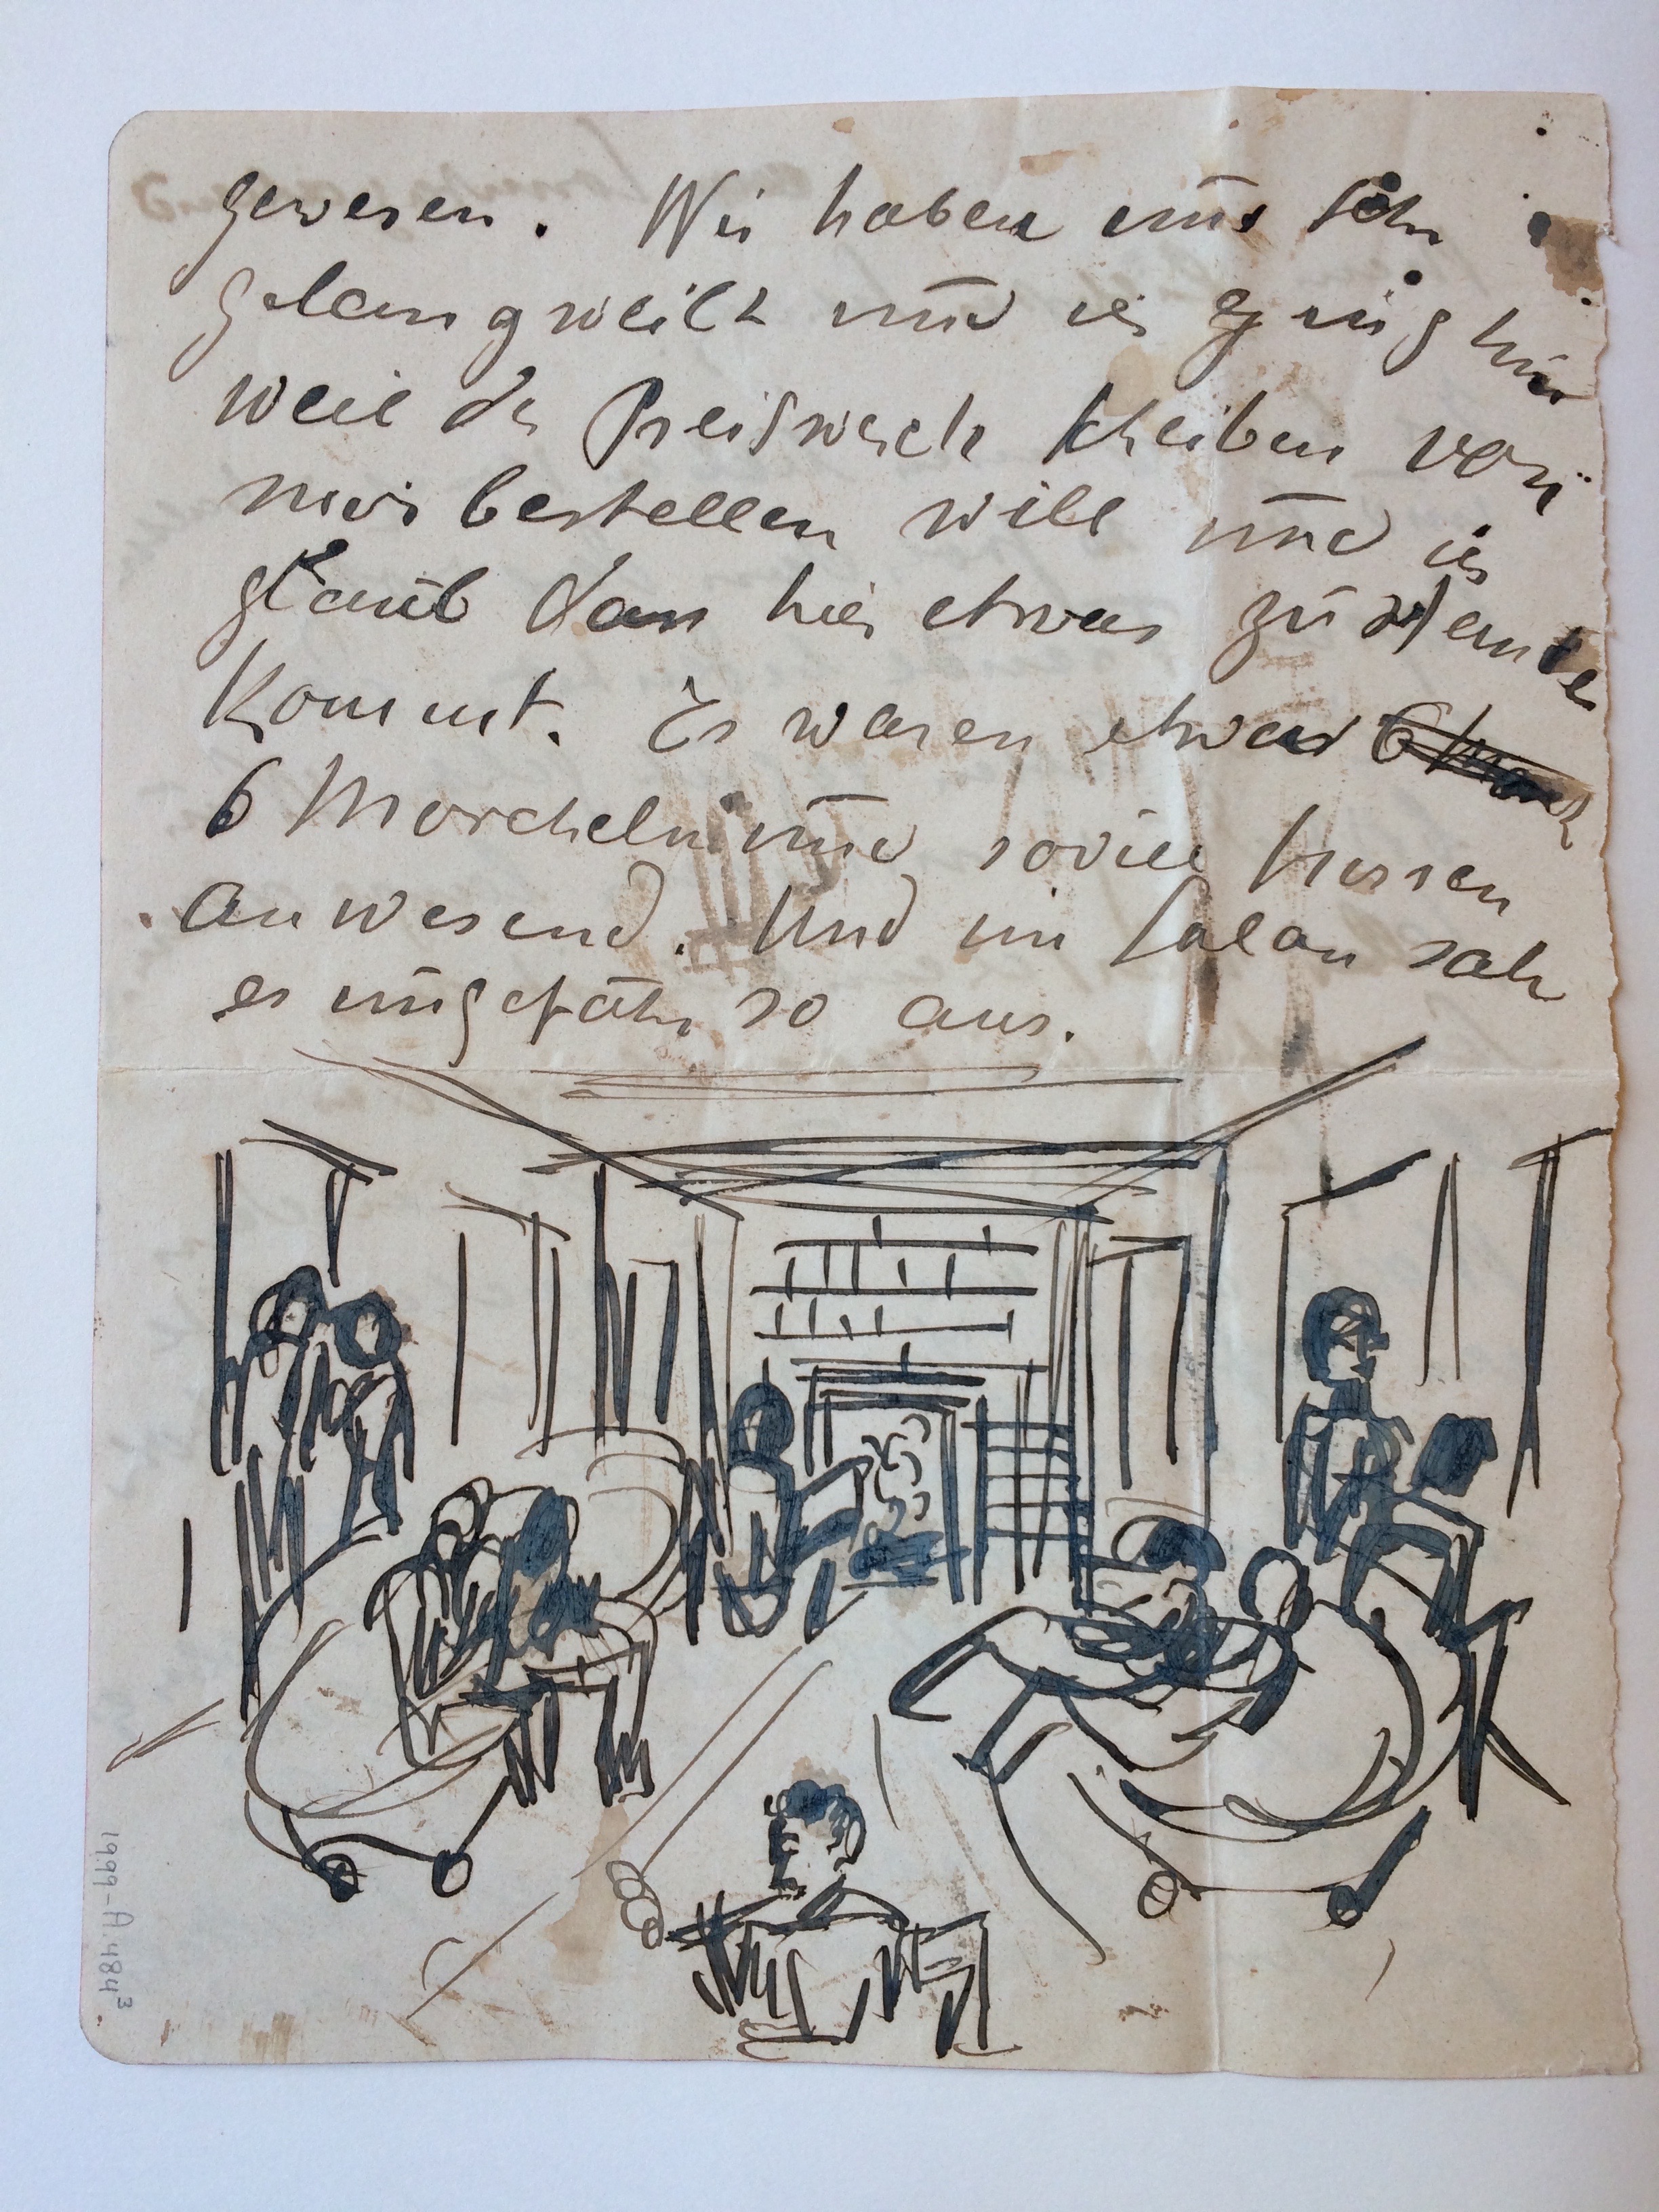 gewesen. Wir haben uns sehr
gelangweilt und ich ging hin
weil der Preiswerk Scheiben von
mir bestellen will und ich
glaub dass hier etwas zu stande
kommt. Es waren etwas
6 Morcheln und soviel Herren
anwesend. Und im Salon sah
es ungefähr so aus.
1999-A.484³